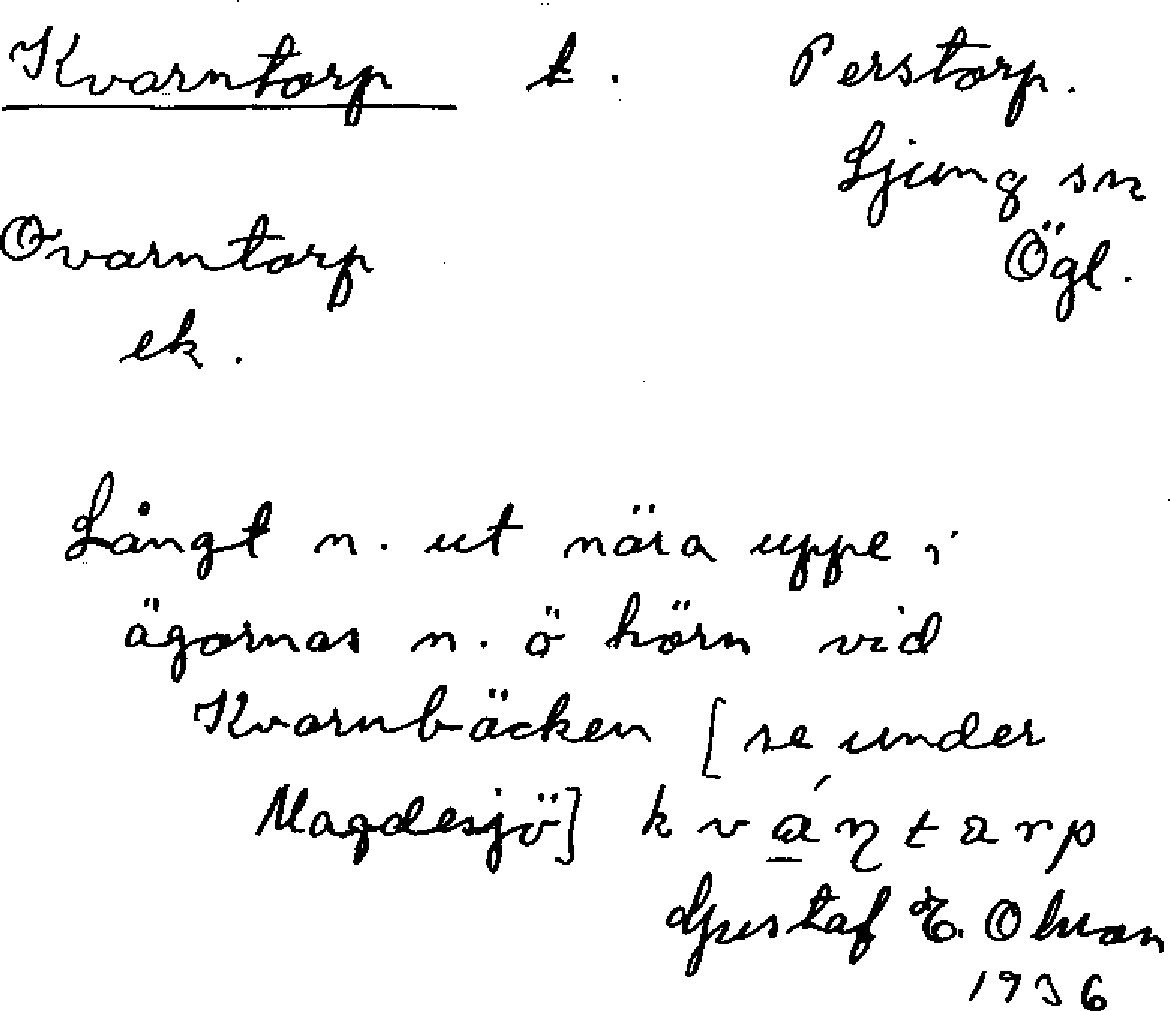 Kvarntorp t. Perstorp.
Ljung sn
Qvarntorp Ögl.
ek.
Långt n. ut nära uppe i
ägornas n. ö hörn vid
Kvarnbäcken [se under
Magdesjö] kvántarp
Gustaf E. Olsson
1936